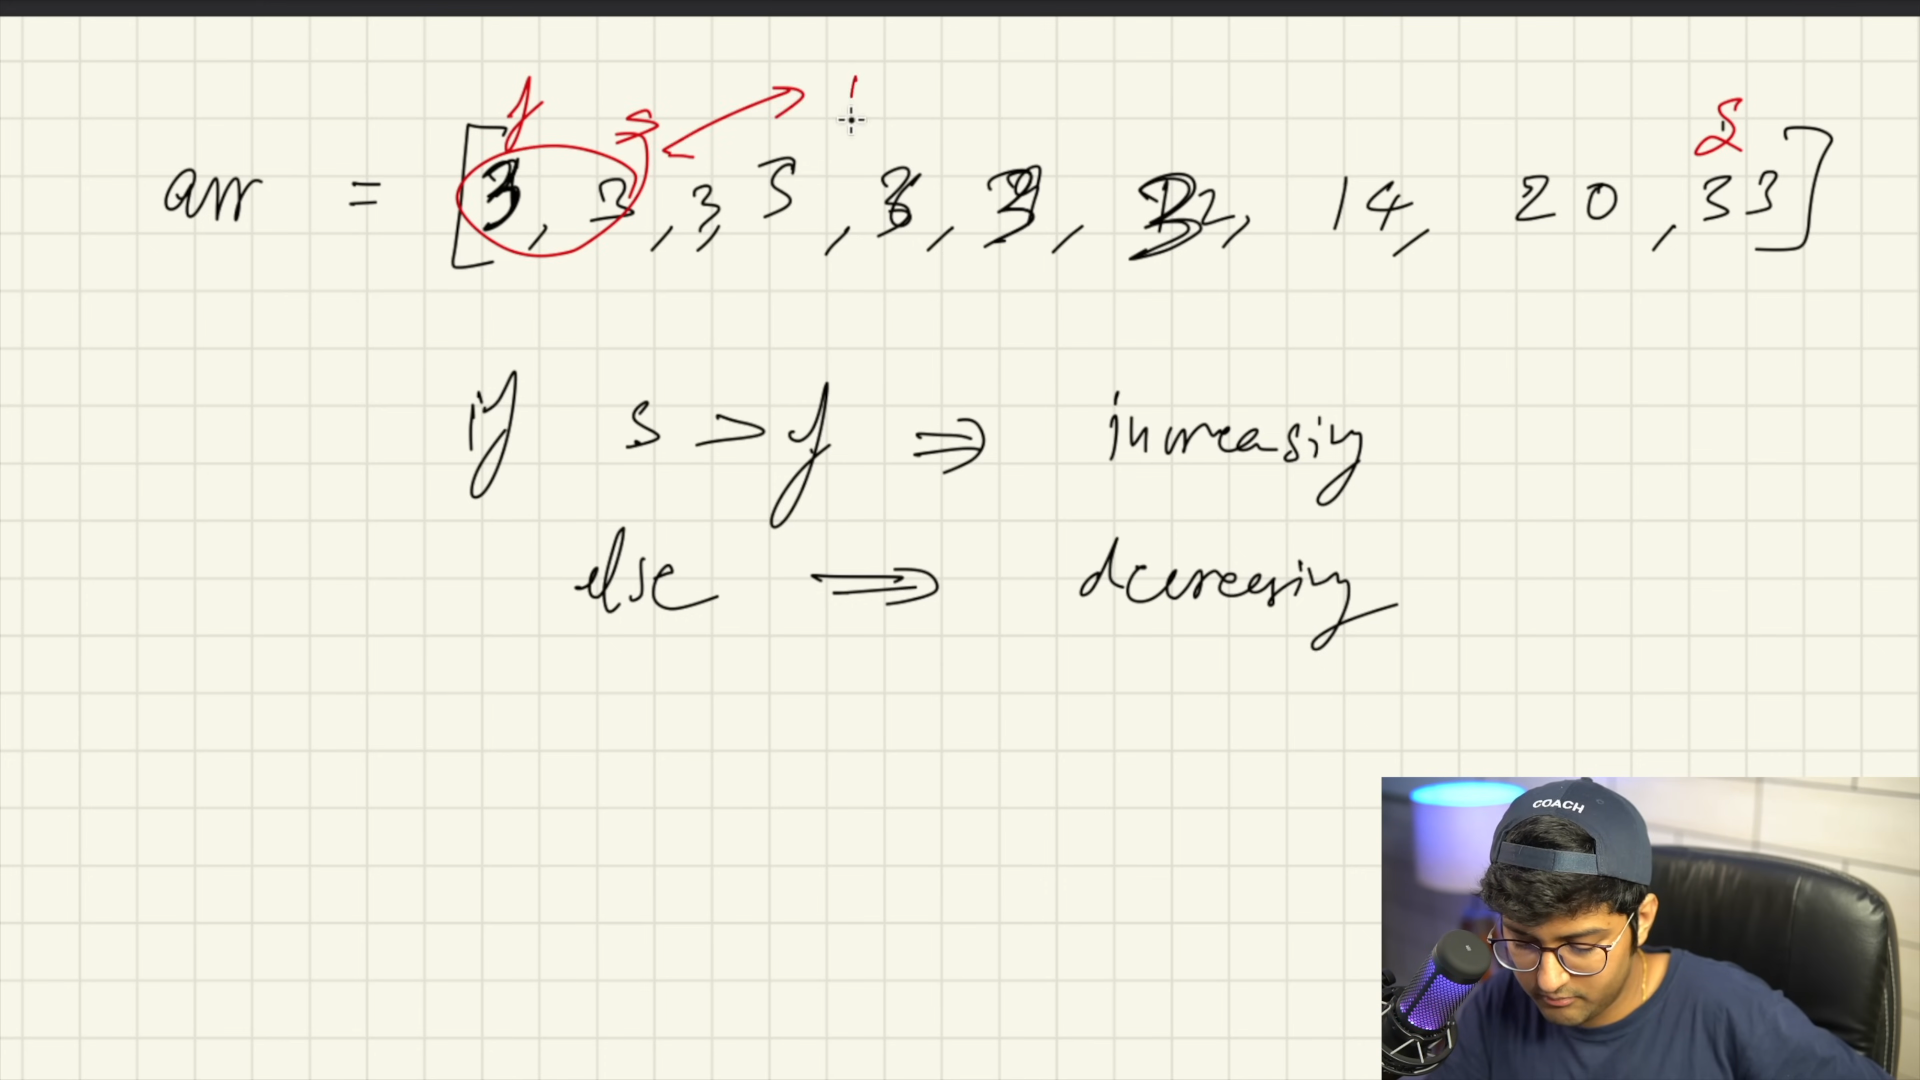 f s s
arr = [3, 3, 3, 5, 14, 20, 33]
if s > f ⇒ increasing
else ⇒ decreasing
COACH